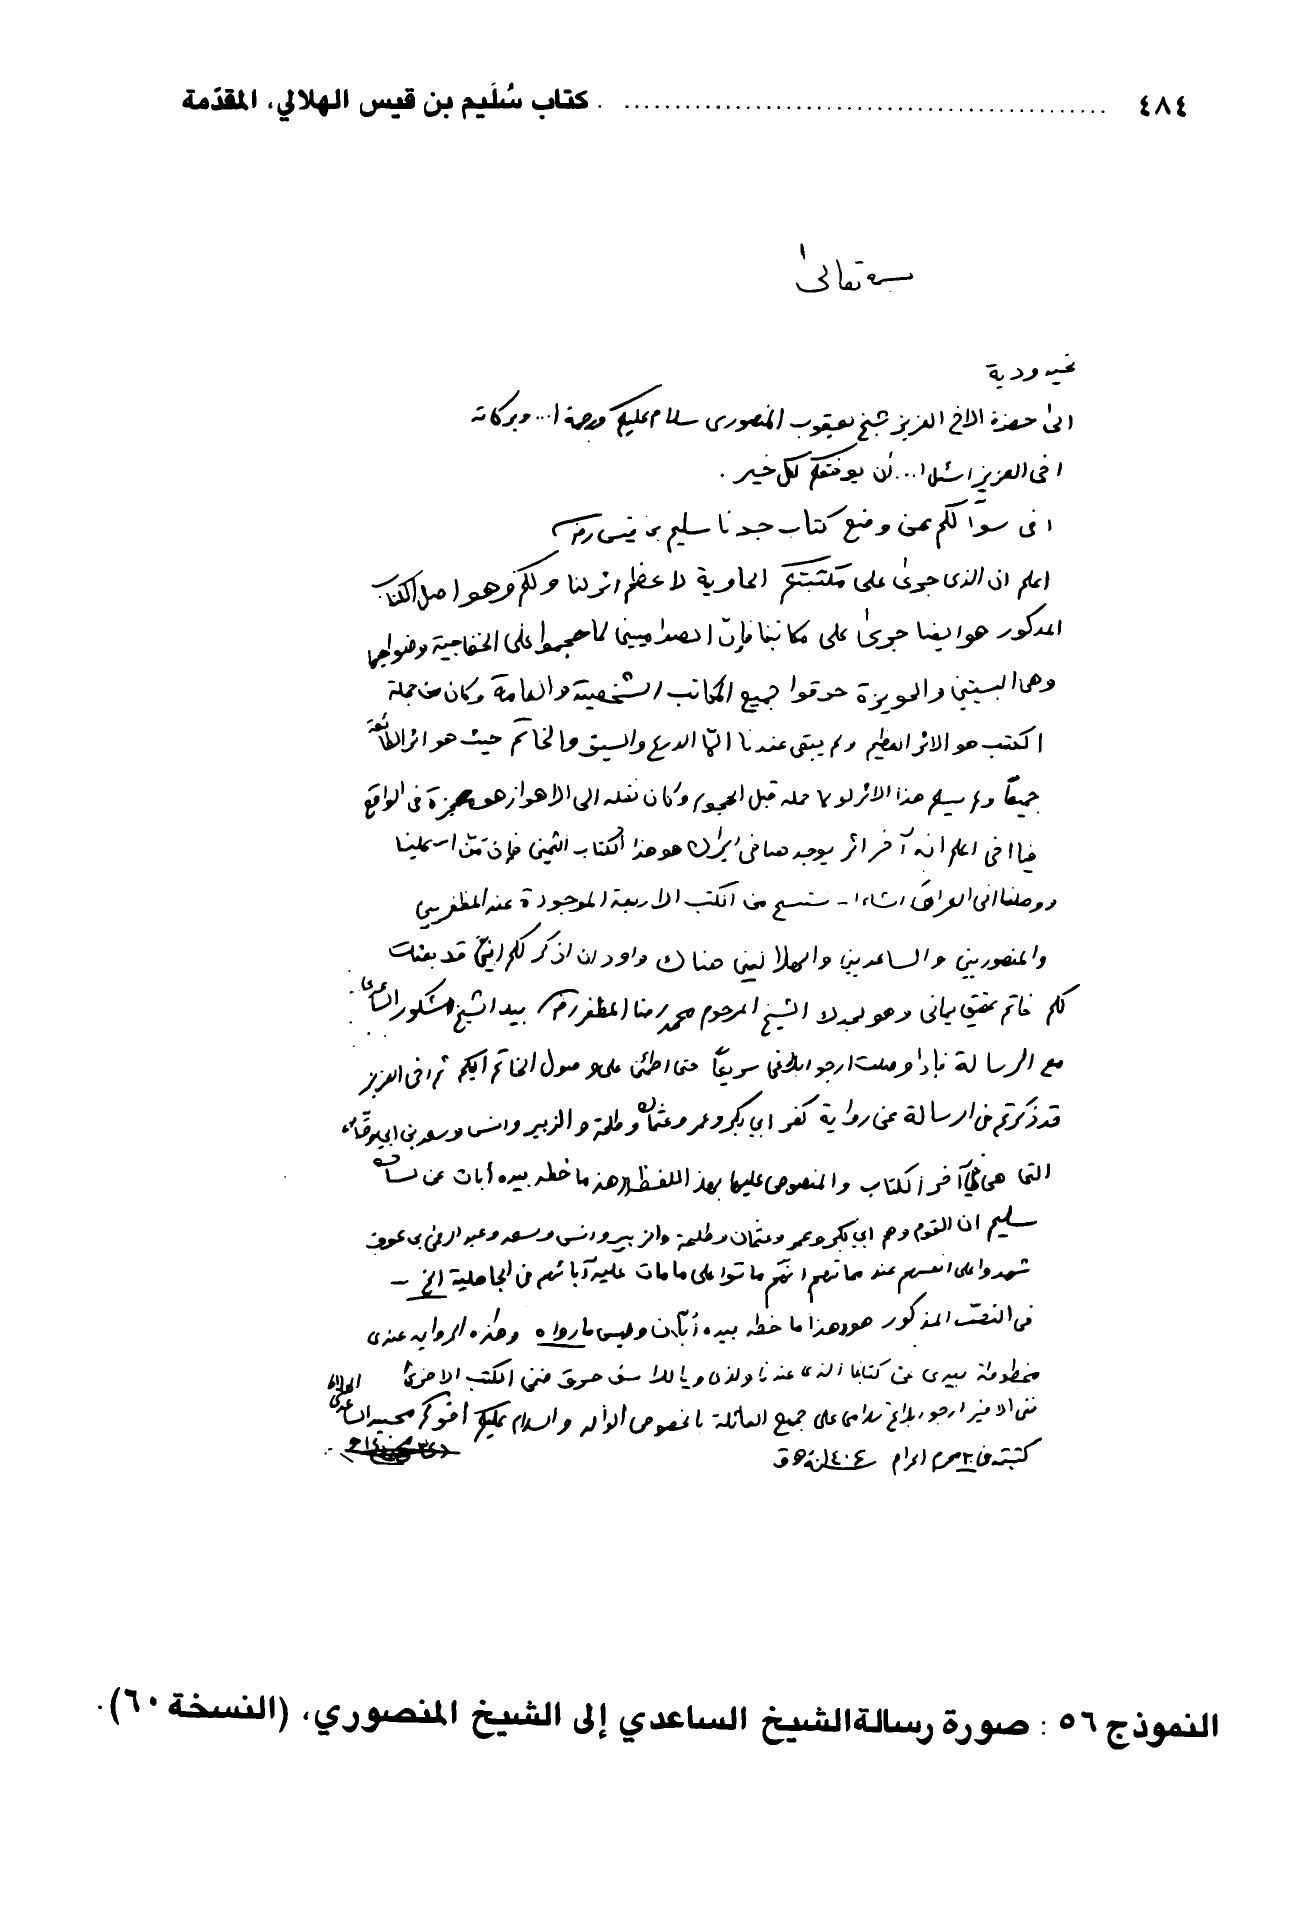 ٤٨٤ ............ كتاب سُلَيم بن قيس الهلالي، المقدّمة
بسمه تعالىٰ
تحيه ودية
الىٰ حضرة الاخ العزيز شيخ يعقوب المنصوری سلام عليكم ورحمة ا... وبركاته
اخی العزيز اسئل ا... أن يوفقكم لكل خير .
اخی سؤالكم عن وضع كتاب جدنا سليم بن قيس رض
اعلم ان الذی جرىٰ على مكتبتكم الحاوية لاعظم اثر لنا ولكم وهو اصل الكتاب
المذكور هو ايضا جرىٰ على مكاتبنا فإنّ الصداميين لما هجموا على الخفاجية وضواحيها
وهی البسيتين والحويزة حرقوا جميع المكاتب الشخصية والعامة وكان من جملة
الكتب هو الاثر العظيم ولم يبقى عندنا الّا الدرع والسيق والخاتم حيث هو اثر الطائفة
جميعاً ولم يسلم هذا الاثر لولا حمله قبل الهجوم وكان نقله الى الاهواز هو معجزة فی الواقع
فيا اخی اعلم انه آخر اثر يوجد هنا فی ايران هو هذا الكتاب الثمين فإن منّ ا... علينا
ووصلنا الى العراق انشاء ا... - ننسخ من الكتب الاربعة الموجودة عند المظفريين
والمنصوريين والساعديين والهلاليين هناك واود ان اذكر لكم اننی قد بعثت
لكم خاتم عقيق يمانی وهو لجدنا الشيخ المرحوم محمد رضا المظفر رض بيد الشيخ شكور الساعدی
مع الرسالة فإذا وصلت ارجو ابلاغی سريعاً حتى اطمئن على وصول الخاتم اليكم ثم اخی العزيز
قد ذكرتم فی الرسالة عن رواية كفر ابي بكر وعمر وعثمان وطلحة والزبير وانس وسعد بن ابي وقاص
التی هی فی آخر الكتاب والمنصوص عليها بهذا اللفظ (هذا ما خطه بيده أبان عن لسان
سليم ان القوم وهم ابي بكر وعمر وعثمان وطلحة والزبير وانس وسعد وعبد الرحمن بن عوف
شهدوا على انفسهم عند مماتهم انهم ماتوا على ما مات عليه آبائهم فی الجاهلية الخ –
فی النصّ المذكور هو وهذا ما خطه بيده أبان وليس ما رواه وهذه الرواية عندی
مخطوطة بيدی عن كتابنا الذی عندنا ولكن ويا للاسف حرق ضمن الكتب الاخرىٰ
فی الاخير ارجو ابلاغ سلامی على جميع العائلة بالخصوص الوالد والسلام عليكم اخوكم محمد الساعدی الهلالی
كتبته فی ٢٠ محرم الحرام سنة ١٤٠٤ ه ق
النموذج ٥٦ : صورة رسالة الشيخ الساعدي إلى الشيخ المنصوري، (النسخة ٦٠).